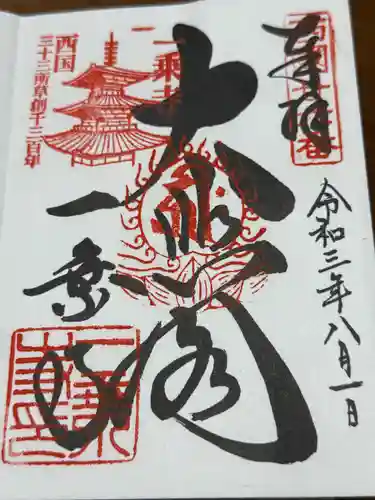 奉拝
西国廿六番
令和三年八月一日
大悲閣
一乗寺
西国
三十三所草創千三百年
一乗寺